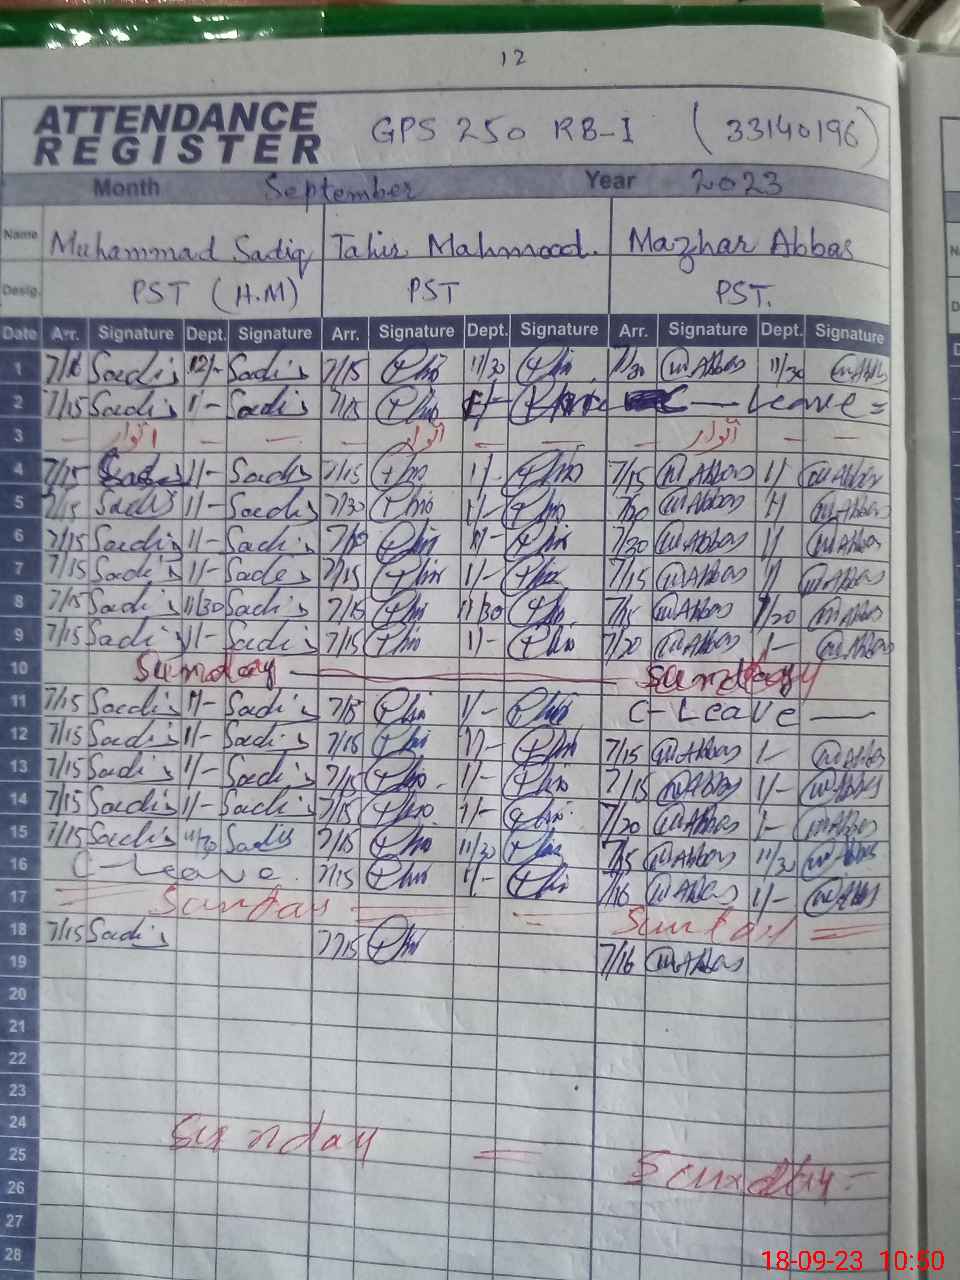 12
ATTENDANCE REGISTER GPS 250 RB-I (33140196)
Month September Year 2023
Name Muhammad Sadiq Tahir Mahmood. Mazhar Abbas
Desig. PST (H.M) PST PST.
Date Arr. Signature Dept. Signature Arr. Signature Dept. Signature Arr. Signature Dept. Signature
1 7/16 Sadiq 12/- Sadiq 7/15 11/30 7/30 M Abbas 11/30 M Abbas
2 7/15 Sadiq 1/- Sadiq 7/15 1/- C - Leave =
3 — اتوار — — — اتوار — — — اتوار — —
4 7/15 Sadiq 1/- Sadiq 7/15 1/- 7/15 M Abbas 1/ M Abbas
5 7/15 Sadiq 1/- Sadiq 7/30 1/- M Abbas M Abbas
6 7/15 Sadiq 1/- Sadiq 1/- 7/30 M Abbas 1/ M Abbas
7 7/15 Sadiq 1/- Sadiq 7/15 1/- 7/15 M Abbas M Abbas
8 7/15 Sadiq 11/30 Sadiq 7/15 11/30 7/15 M Abbas M Abbas
9 7/15 Sadiq 1/- Sadiq 7/15 1/- 7/20 M Abbas 1- M Abbas
10 Sunday — Sunday
11 7/15 Sadiq 1/- Sadiq 7/15 1/- C - Leave —
12 7/15 Sadiq 1/- Sadiq 7/16 1/- 7/15 M Abbas 1- M Abbas
13 7/15 Sadiq 1/- Sadiq 7/15 1/- 7/15 M Abbas 1/- M Abbas
14 7/15 Sadiq 1/- Sadiq 7/15 1/- 7/20 M Abbas 1- M Abbas
15 7/15 Sadiq 11/30 Sadiq 7/15 11/30 7/15 M Abbas 11/30 M Abbas
16 C - Leave 7/15 1/- 7/16 M Abbas 1/- M Abbas
17 = Sunday = — Sunday =
18 7/15 Sadiq 7/15 7/16 M Abbas
19
20
21
22
23
24 Sunday = Sunday -
25
26
27
28
18-09-23 10:50